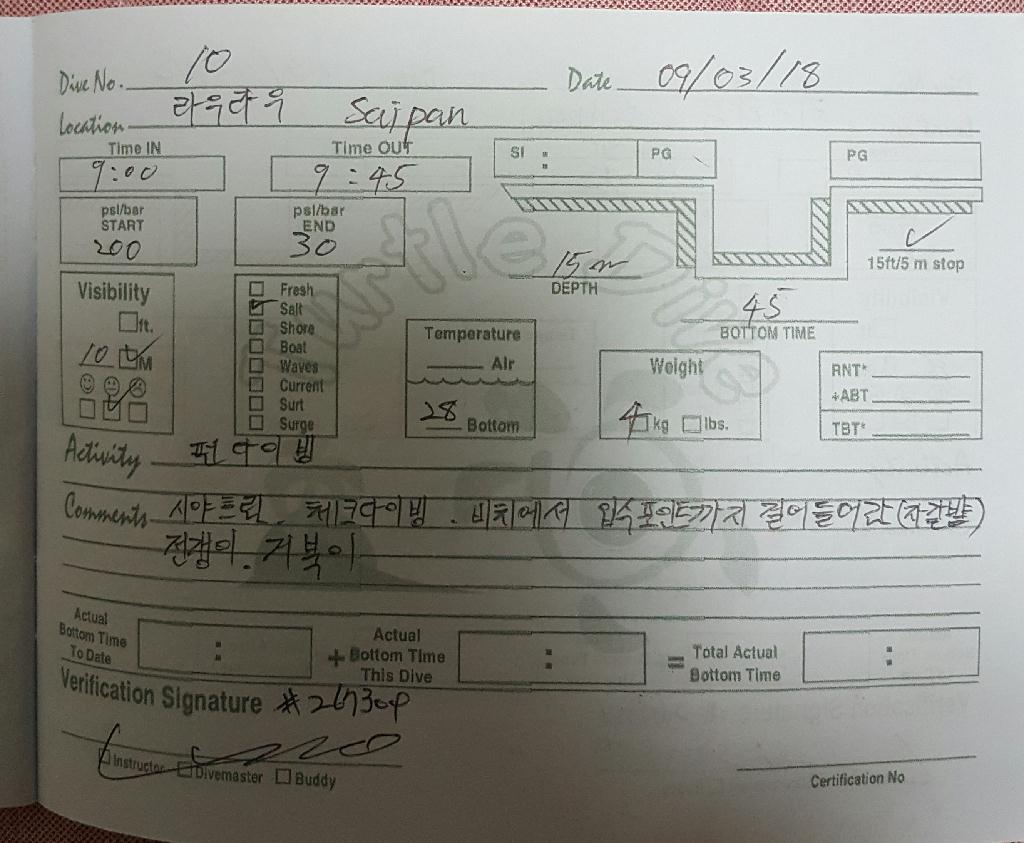 Dive No. 10 Date 09/03/18
Location 라우라우 Saipan
Time IN Time OUT SI : PG PG
9:00 9:45
psi/bar START 200
psi/bar END 30
15m DEPTH
15ft/5 m stop
45 BOTTOM TIME
Visibility
ft.
10 M
Fresh
Salt
Shore
Boat
Waves
Current
Surt
Surge
Temperature
Air
28 Bottom
Weight
4 kg lbs.
RNT*
+ABT
TBT*
Activity 펀다이빙
Comments 시야흐림. 체크다이빙. 비치에서 입수포인트까지 걸어들어감(자갈밭)
전갱이. 거북이
Actual Bottom Time To Date : + Actual Bottom Time This Dive : = Total Actual Bottom Time :
Verification Signature
Instructor Divemaster Buddy
Certification No
Turtle Dive